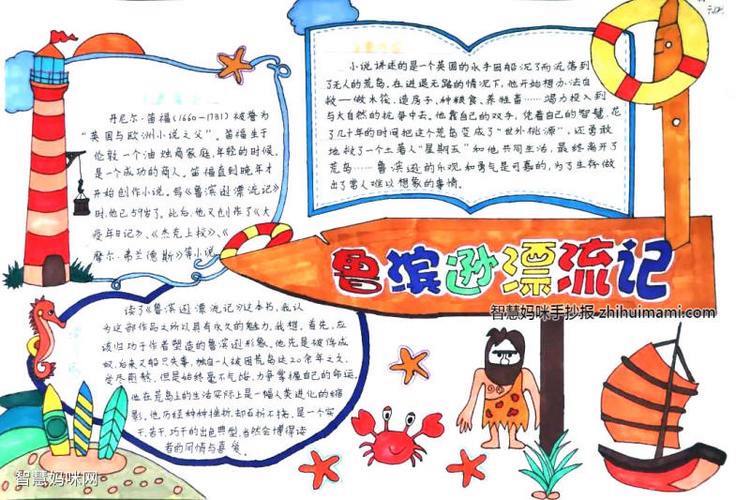 丹尼尔·笛福(1660-1731)被誉为
"英国与欧洲小说之父"。笛福生于
伦敦一个油烛商家庭,年轻的时候,
是一个成功的商人。笛福直到晚年才
开始创作小说,写《鲁滨逊漂流记》
时,他已59岁了。此后,他又创作了《大
疫年日记》、《杰克上校》、《
摩尔·弗兰德斯》等小说
小说讲述的是一个英国的水手因船沉了而流落到
了无人的荒岛,在进退无路的情况下,他开始想办法自
救——做木筏、造房子、种粮食、养牲畜……竭力投入到
与大自然的抗争中去。他靠自己的双手,凭着自己的智慧,花
了几十年的时间把这个荒岛变成了"世外桃源",还勇敢
地救了一个土著人"星期五"和他共同生活,最终离开了
荒岛……鲁滨逊的乐观和勇气是可嘉的,为了生存做
出了常人难以想象的事情。
鲁滨逊漂流记
智慧妈咪手抄报 zhihuimami.com
读了《鲁滨逊漂流记》这本书,我认
为这部作品之所以具有永久的魅力,我想,首先,应
该归功于作者塑造的鲁滨逊形象。他先是被俘成
奴,后来又船只失事,独自一人被困荒岛达20余年之久,
受尽煎熬。但是始终毫不气馁,力争掌握自己的命运,
他在荒岛上的生活实际上是一幅人类进化的缩
影,他历经种种挫折,却百折不挠,是一个实
干、苦干、巧干的出色典型,当然会博得读
者的同情与喜爱
智慧妈咪网